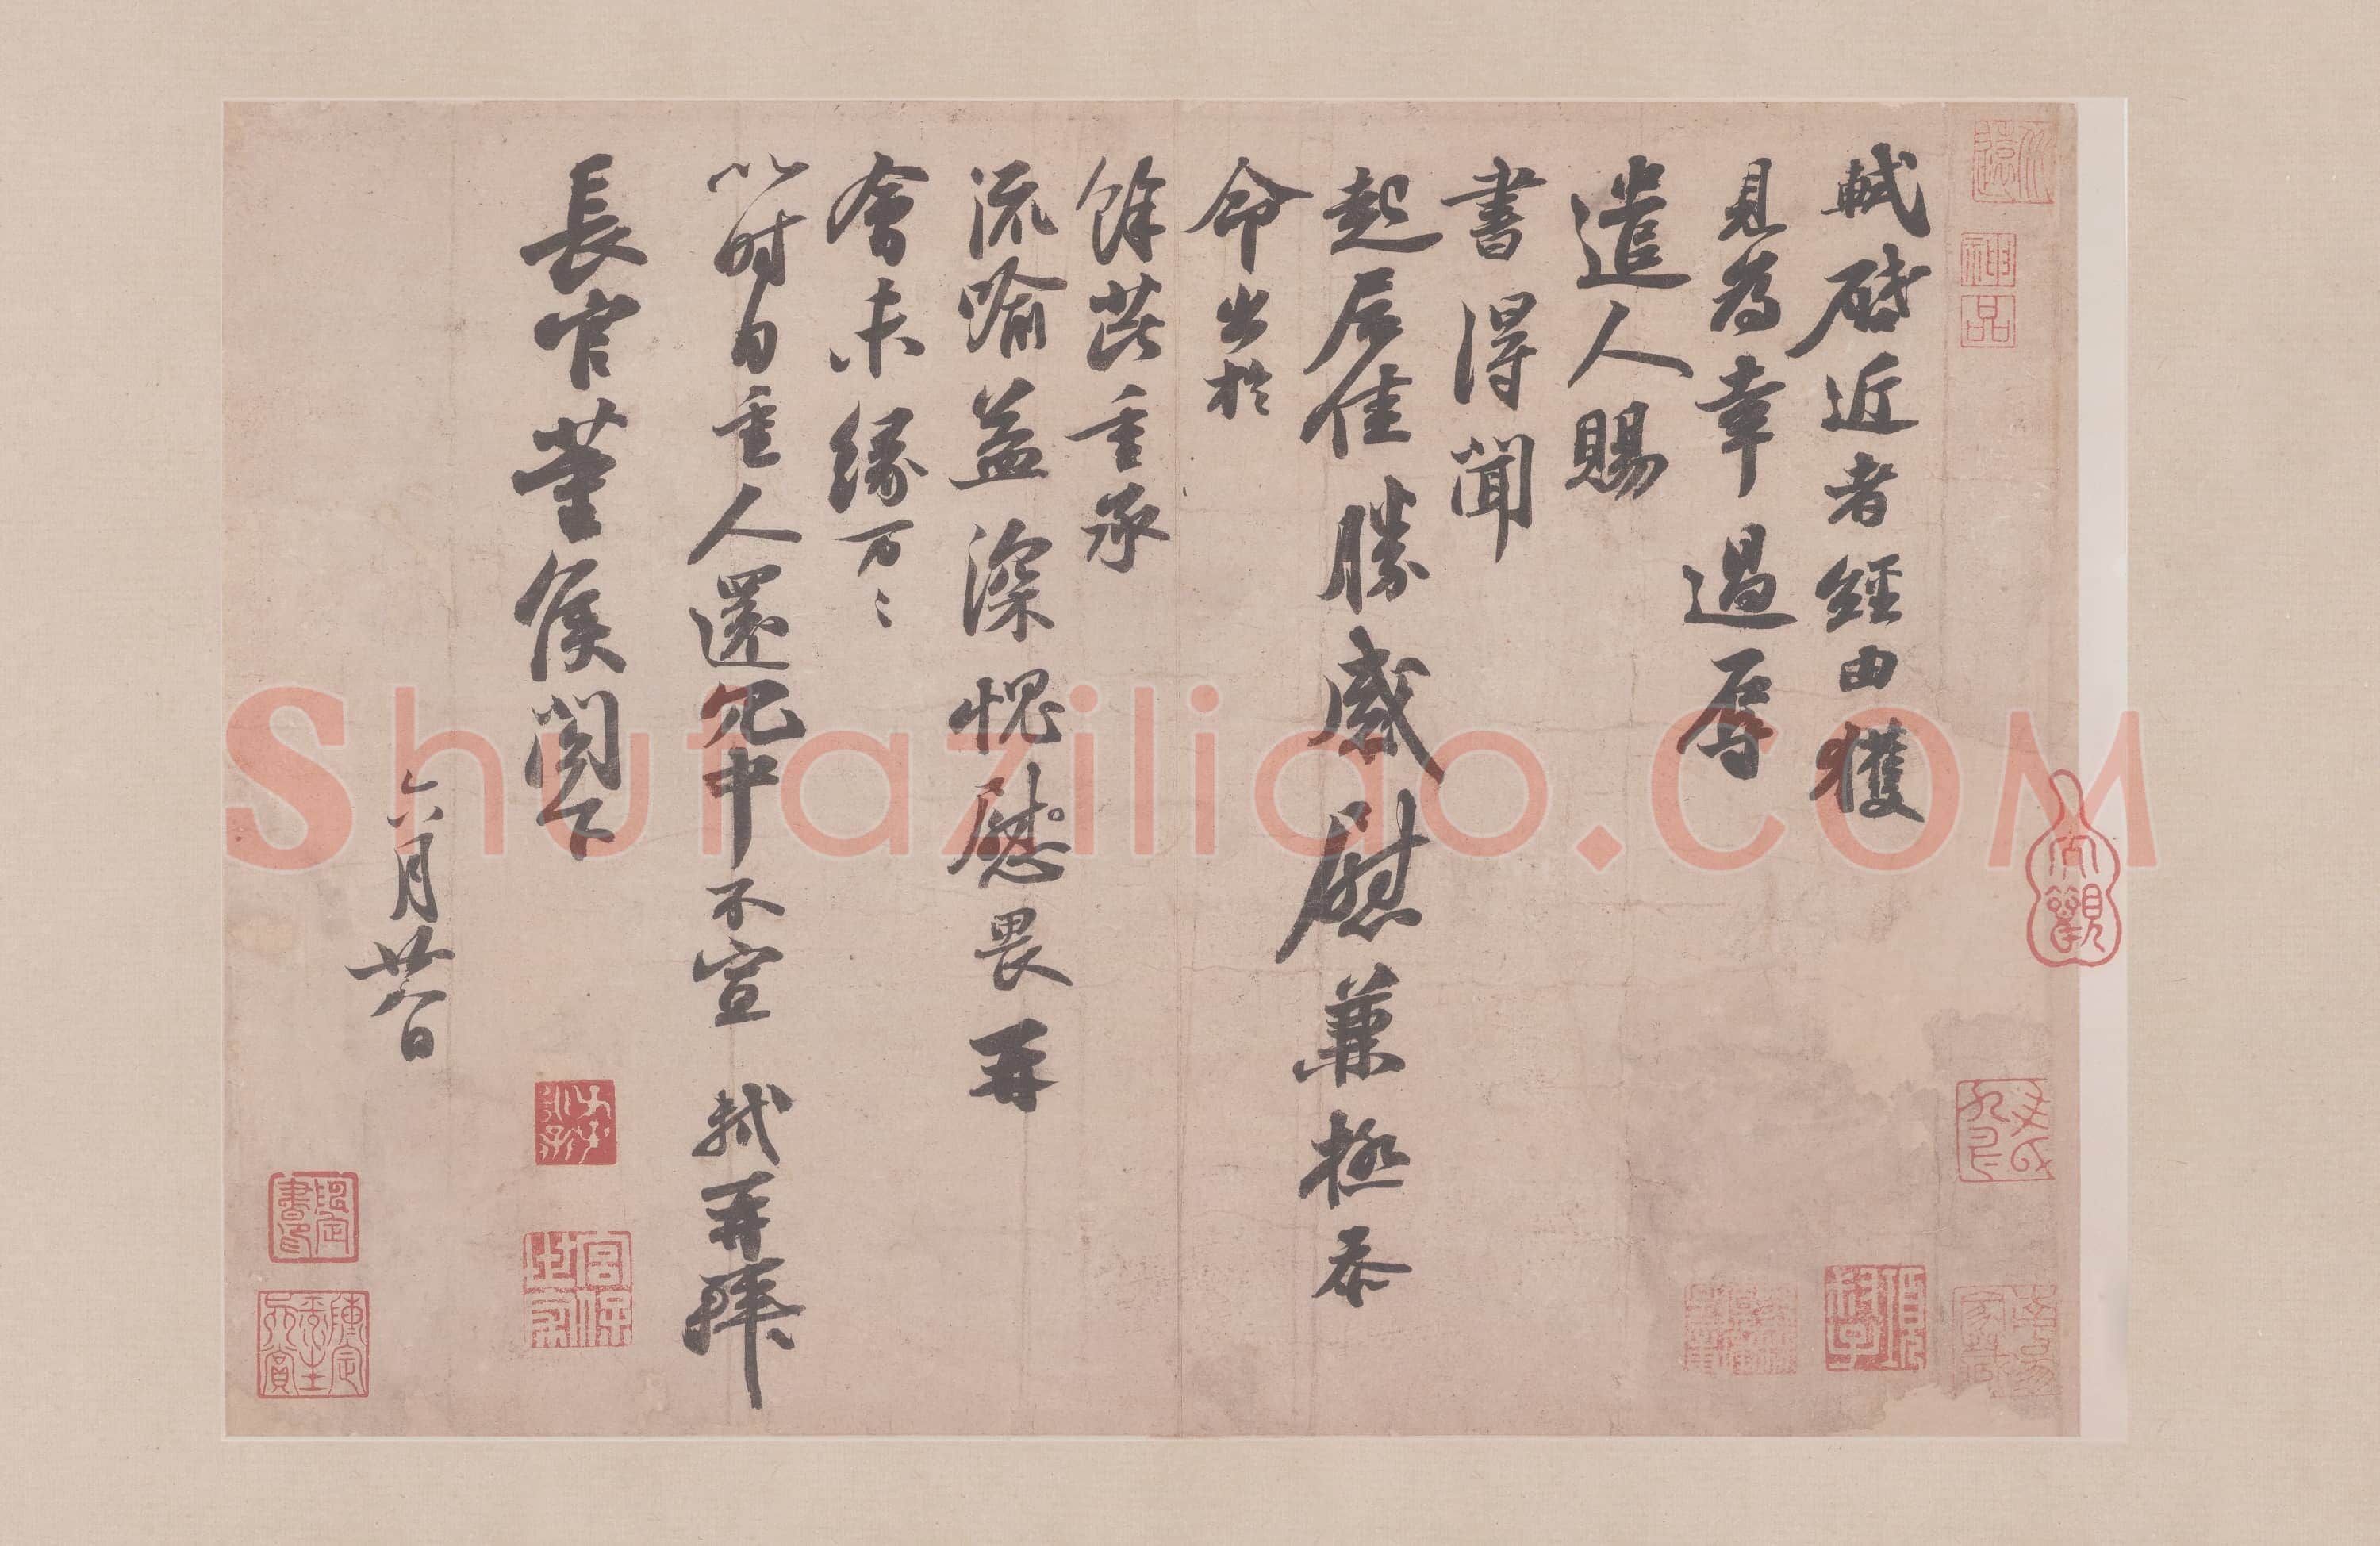 軾啓近者經由獲
見爲幸過辱
遣人賜
書得聞
起居佳勝感慰兼極忝
命出於
餘芘重承
流喻益深愧慰畏再
會未緣万〻
以時自重人還冗中不宣 軾再拜
長官董侯閣下
六月廿八日
神品
Shufaziliao.COM